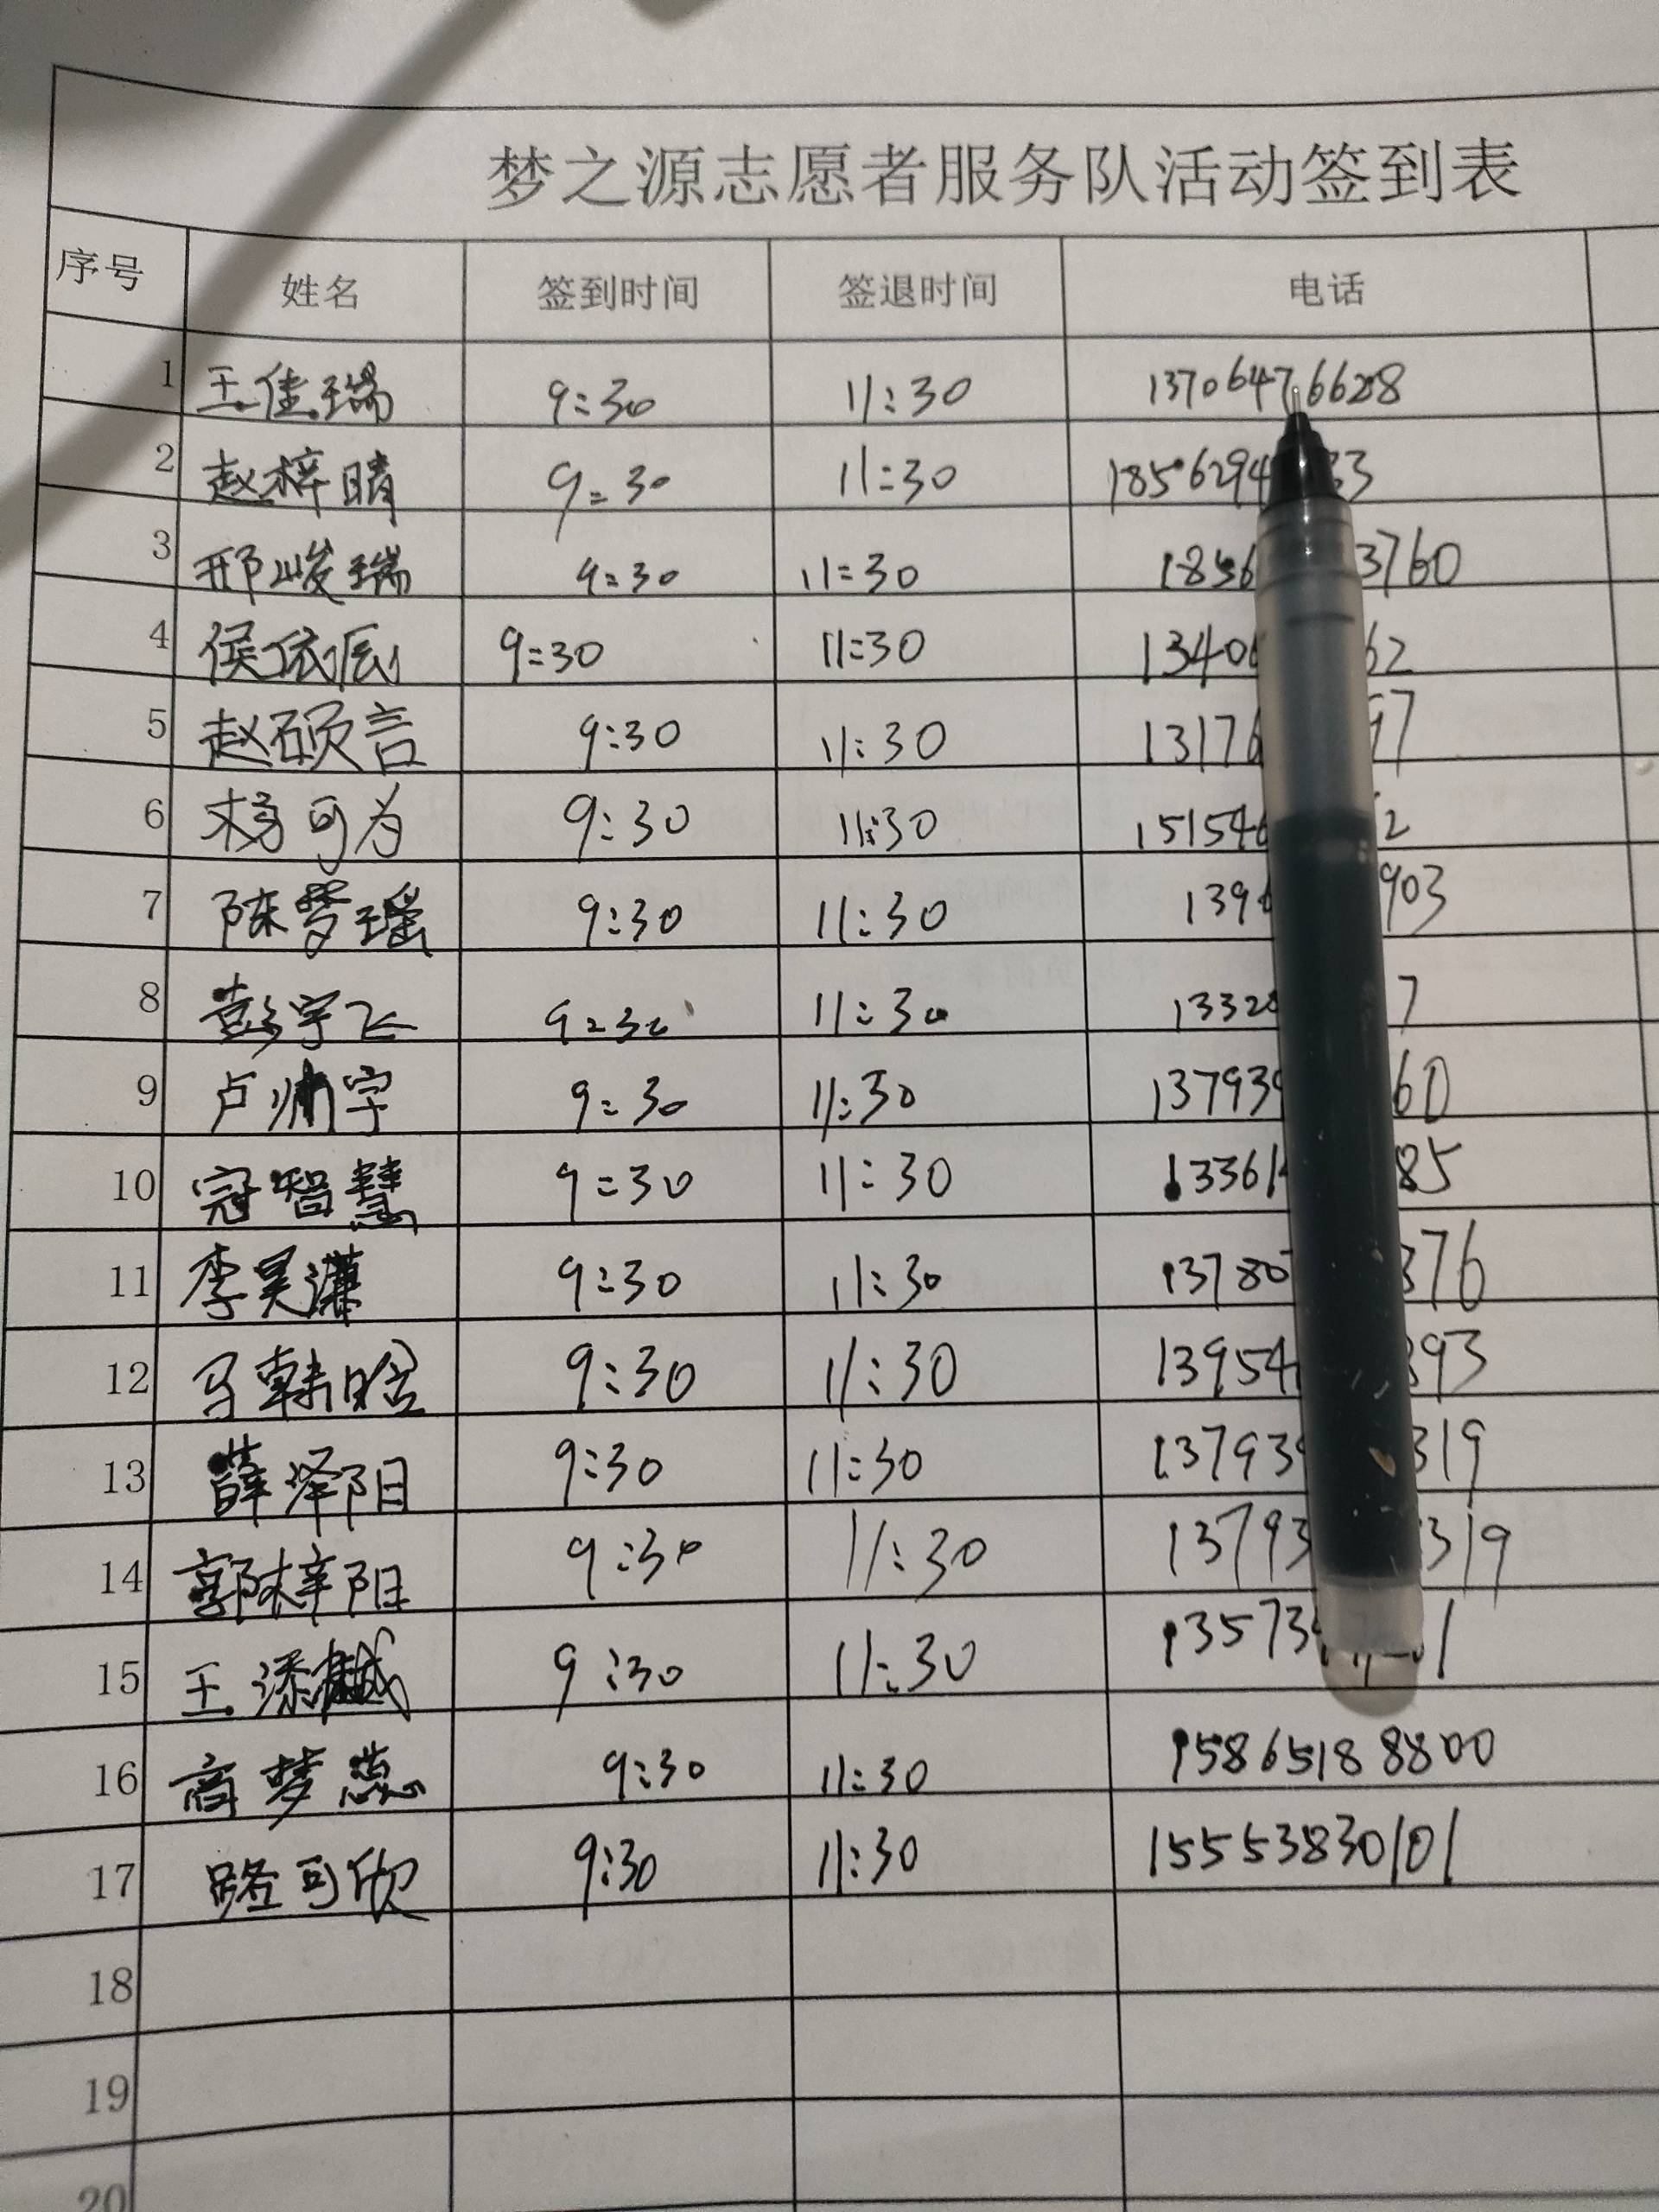 梦之源志愿者服务队活动签到表
序号 姓名 签到时间 签退时间 电话
1 王佳瑞 9:30 11:30 13706476628
2 赵梓晴 9:30 11:30 1856294 33
3 邢峻瑞 9:30 11:30 1856 3760
4 侯依辰 9:30 11:30 1340 62
5 赵硕言 9:30 11:30 13176 97
6 杨可为 9:30 11:30 15154 2
7 陈梦瑶 9:30 11:30 139 903
8 彭宇飞 9:30 11:30 1332 7
9 卢帅宇 9:30 11:30 13793 60
10 寇智慧 9:30 11:30 1336 85
11 李昊潇 9:30 11:30 13780 376
12 马韩晗 9:30 11:30 13954 393
13 薛泽阳 9:30 11:30 13793 319
14 郭梓阳 9:30 11:30 13793 319
15 王添越 9:30 11:30 13573 1
16 商梦蕊 9:30 11:30 15865188800
17 路可欣 9:30 11:30 15553830101
18
19
20